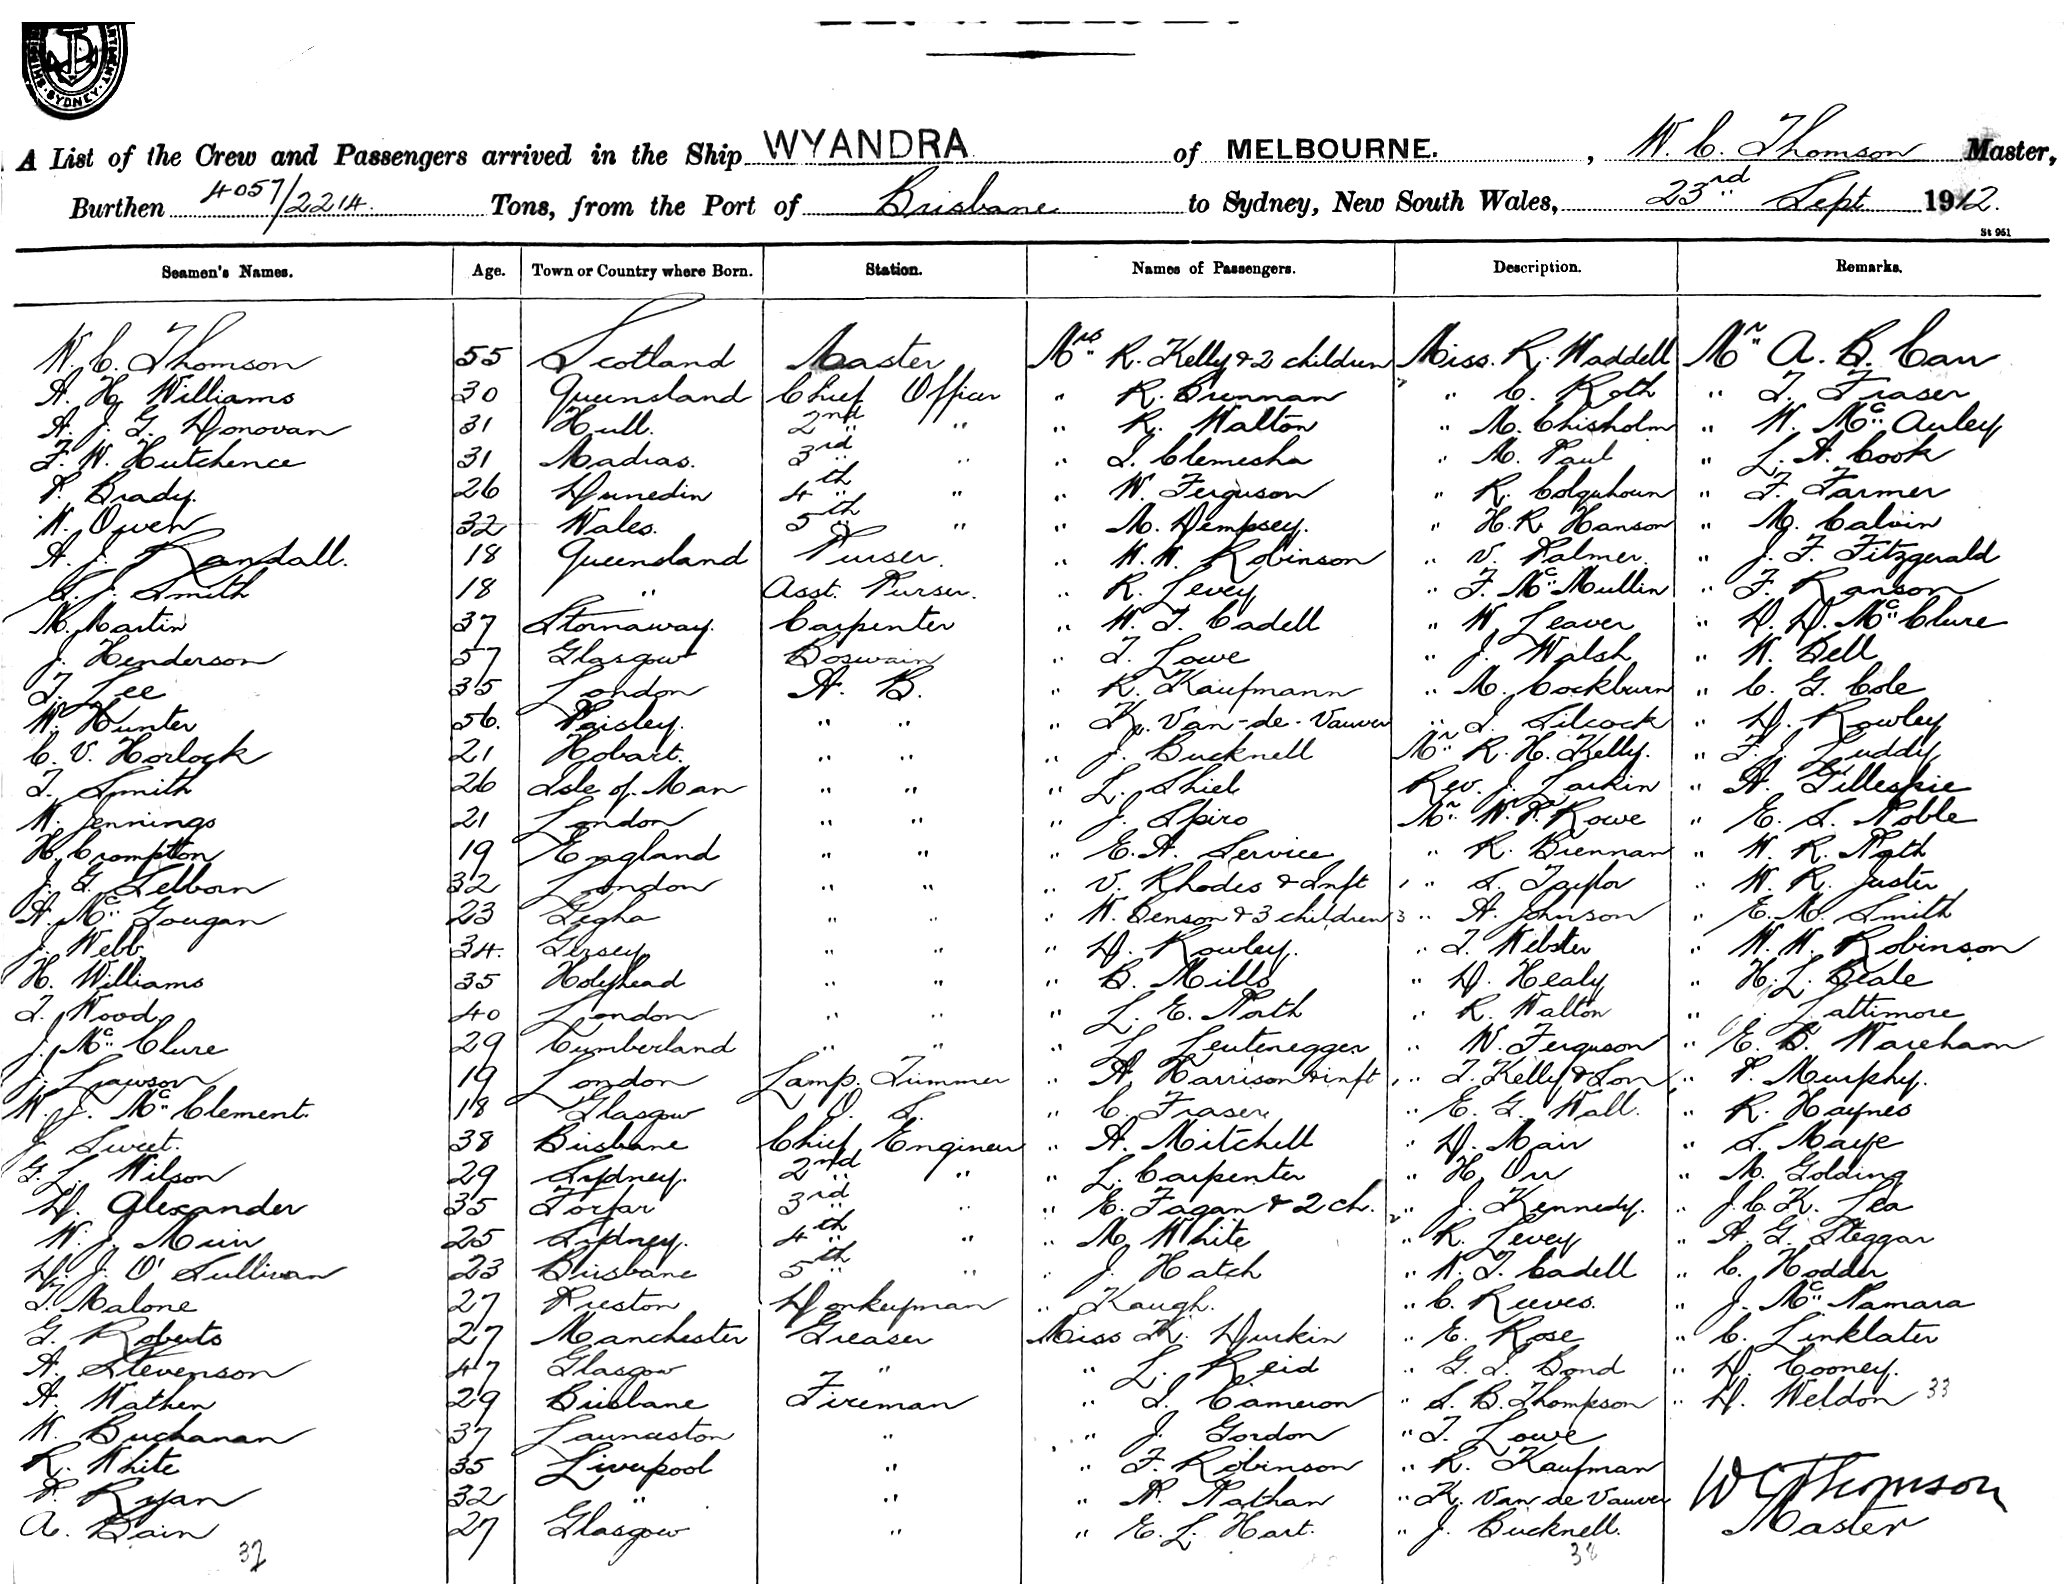 SYDNEY
A List of the Crew and Passengers arrived in the Ship WYANDRA of MELBOURNE. , W. C. Thomson Master,
Burthen 4057/2214. Tons, from the Port of Brisbane to Sydney, New South Wales, 23rd Sept 1912.
St 951
Seamen's Names. Age. Town or Country where Born. Station. Names of Passengers. Description. Remarks.
W. C. Thomson 55 Scotland Master Mrs R. Kelly & 2 children Miss. R. Waddell Mr A. B. Carr
A. H. Williams 30 Queensland Chief Officer " R. Brennan " C. Roth " T. Fraser
A. J. G. Donovan 31 Hull. 2nd " " R. Walton " M. Chisholm " W. Mc Auley
F. W. Hutchence 31 Madras. 3rd " " I. Clemesha " M. Paul " L. A. Cook
P. Brady. 26 Dunedin 4th " " W. Ferguson " R. Colquhoun " F. Farmer
W. Owen 32 Wales. 5th " " M. Dempsey. " H. R. Hanson " M. Calvin
A. J. Randall. 18 Queensland Purser. " W. W. Robinson " V. Palmer. " J. F. Fitzgerald
J. Smith 18 " Asst. Purser. " R. Levey " F. Mc Mullin " F. Ranson
M. Martin 37 Stornaway. Carpenter " W. T. Cadell " W. Leaver " D. D. Mc Clure
J. Henderson 57 Glasgow Boswain " T. Lowe " J. Walsh " W. Bell
T. Lee 35 London A. B. " R. Kaufmann " M. Cockburn " C. G. Cole
W. Hunter 56. Paisley. " " " K. Van-de-Vauver " S. Silcock " D. Rowley
C. V. Horlock 21 Hobart. " " " J. Bucknell Mr R. H. Kelly. " F. J. Luddy
T. Smith 26 Isle of Man " " " L. Shiel Rev. J. Larkin " A. Gillespie
W. Jennings 21 London " " " J. Spiro Mr W. P. Rowe " E. S. Noble
H. Crompton 19 England " " " E. A. Service " R. Brennan " W. R. Path
J. G. Selborn 32 London " " " V. Rhodes & Inft 1 " S. Taylor " W. R. Juster
A. Mc Gougan 23 Gegha " " " W. Benson & 3 children 3 " A. Johnson " E. M. Smith
J. Webb. 34. Jersey " " " D. Rowley. " T. Webster " W. W. Robinson
H. Williams 35 Holyhead " " " B. Mills " D. Healy " H. L. Beale
T. Wood 40 London " " " L. E. Path " R. Walton " Lattimore
J. Mc Clure 29 Cumberland " " " L. Leutenegger " W. Ferguson " E. B. Wareham
J. Lawson 19 London Lamp. Trimmer " A Harrison & inft 1 " T. Kelly & Son " P. Murphy.
W. J. Mc Clement. 18 Glasgow O. S. " C. Fraser " E. G. Wall. " R. Haynes
J. Sweet. 38 Brisbane Chief Engineer " A. Mitchell " D. Mair " S. Maye
G. L. Wilson 29 Sydney. 2nd " " L. Carpenter " H. Orr " M. Golding
D. Alexander 35 Forfar 3rd " " E. Fagan & 2 ch. 2 " J. Kennedy. " J. C. K. Lea
W. J. Muir 25 Sydney. 4th " " M. White " R. Levey " A. G. Steggar
D. J. O'Sullivan 23 Brisbane 5th " " J. Hatch " W. T. Cadell " C. Hodder
T. Malone 27 Preston Donkeyman " Kaugh. " C. Reeves. " J. Mc Namara
G. Roberts 27 Manchester Greaser Miss K. Durkin " E. Rose " C. Linklater
A. Stevenson 47 Glasgow " " L. Reid " G. S. Bond " D. Cooney.
A. Wathen 29 Brisbane Fireman " I. Cameron " S. B. Thompson " D. Weldon 33
W. Buchanan 37 Launceston " " J. Gordon " T. Lowe
R. White 35 Liverpool " " F. Robinson " R. Kaufman
P. Ryan 32 " " " P. Nathan " K. Van de Vauver
A. Bain 27 Glasgow " " E. L. Hart. " J. Bucknell.
WC Thomson
Master
37 38